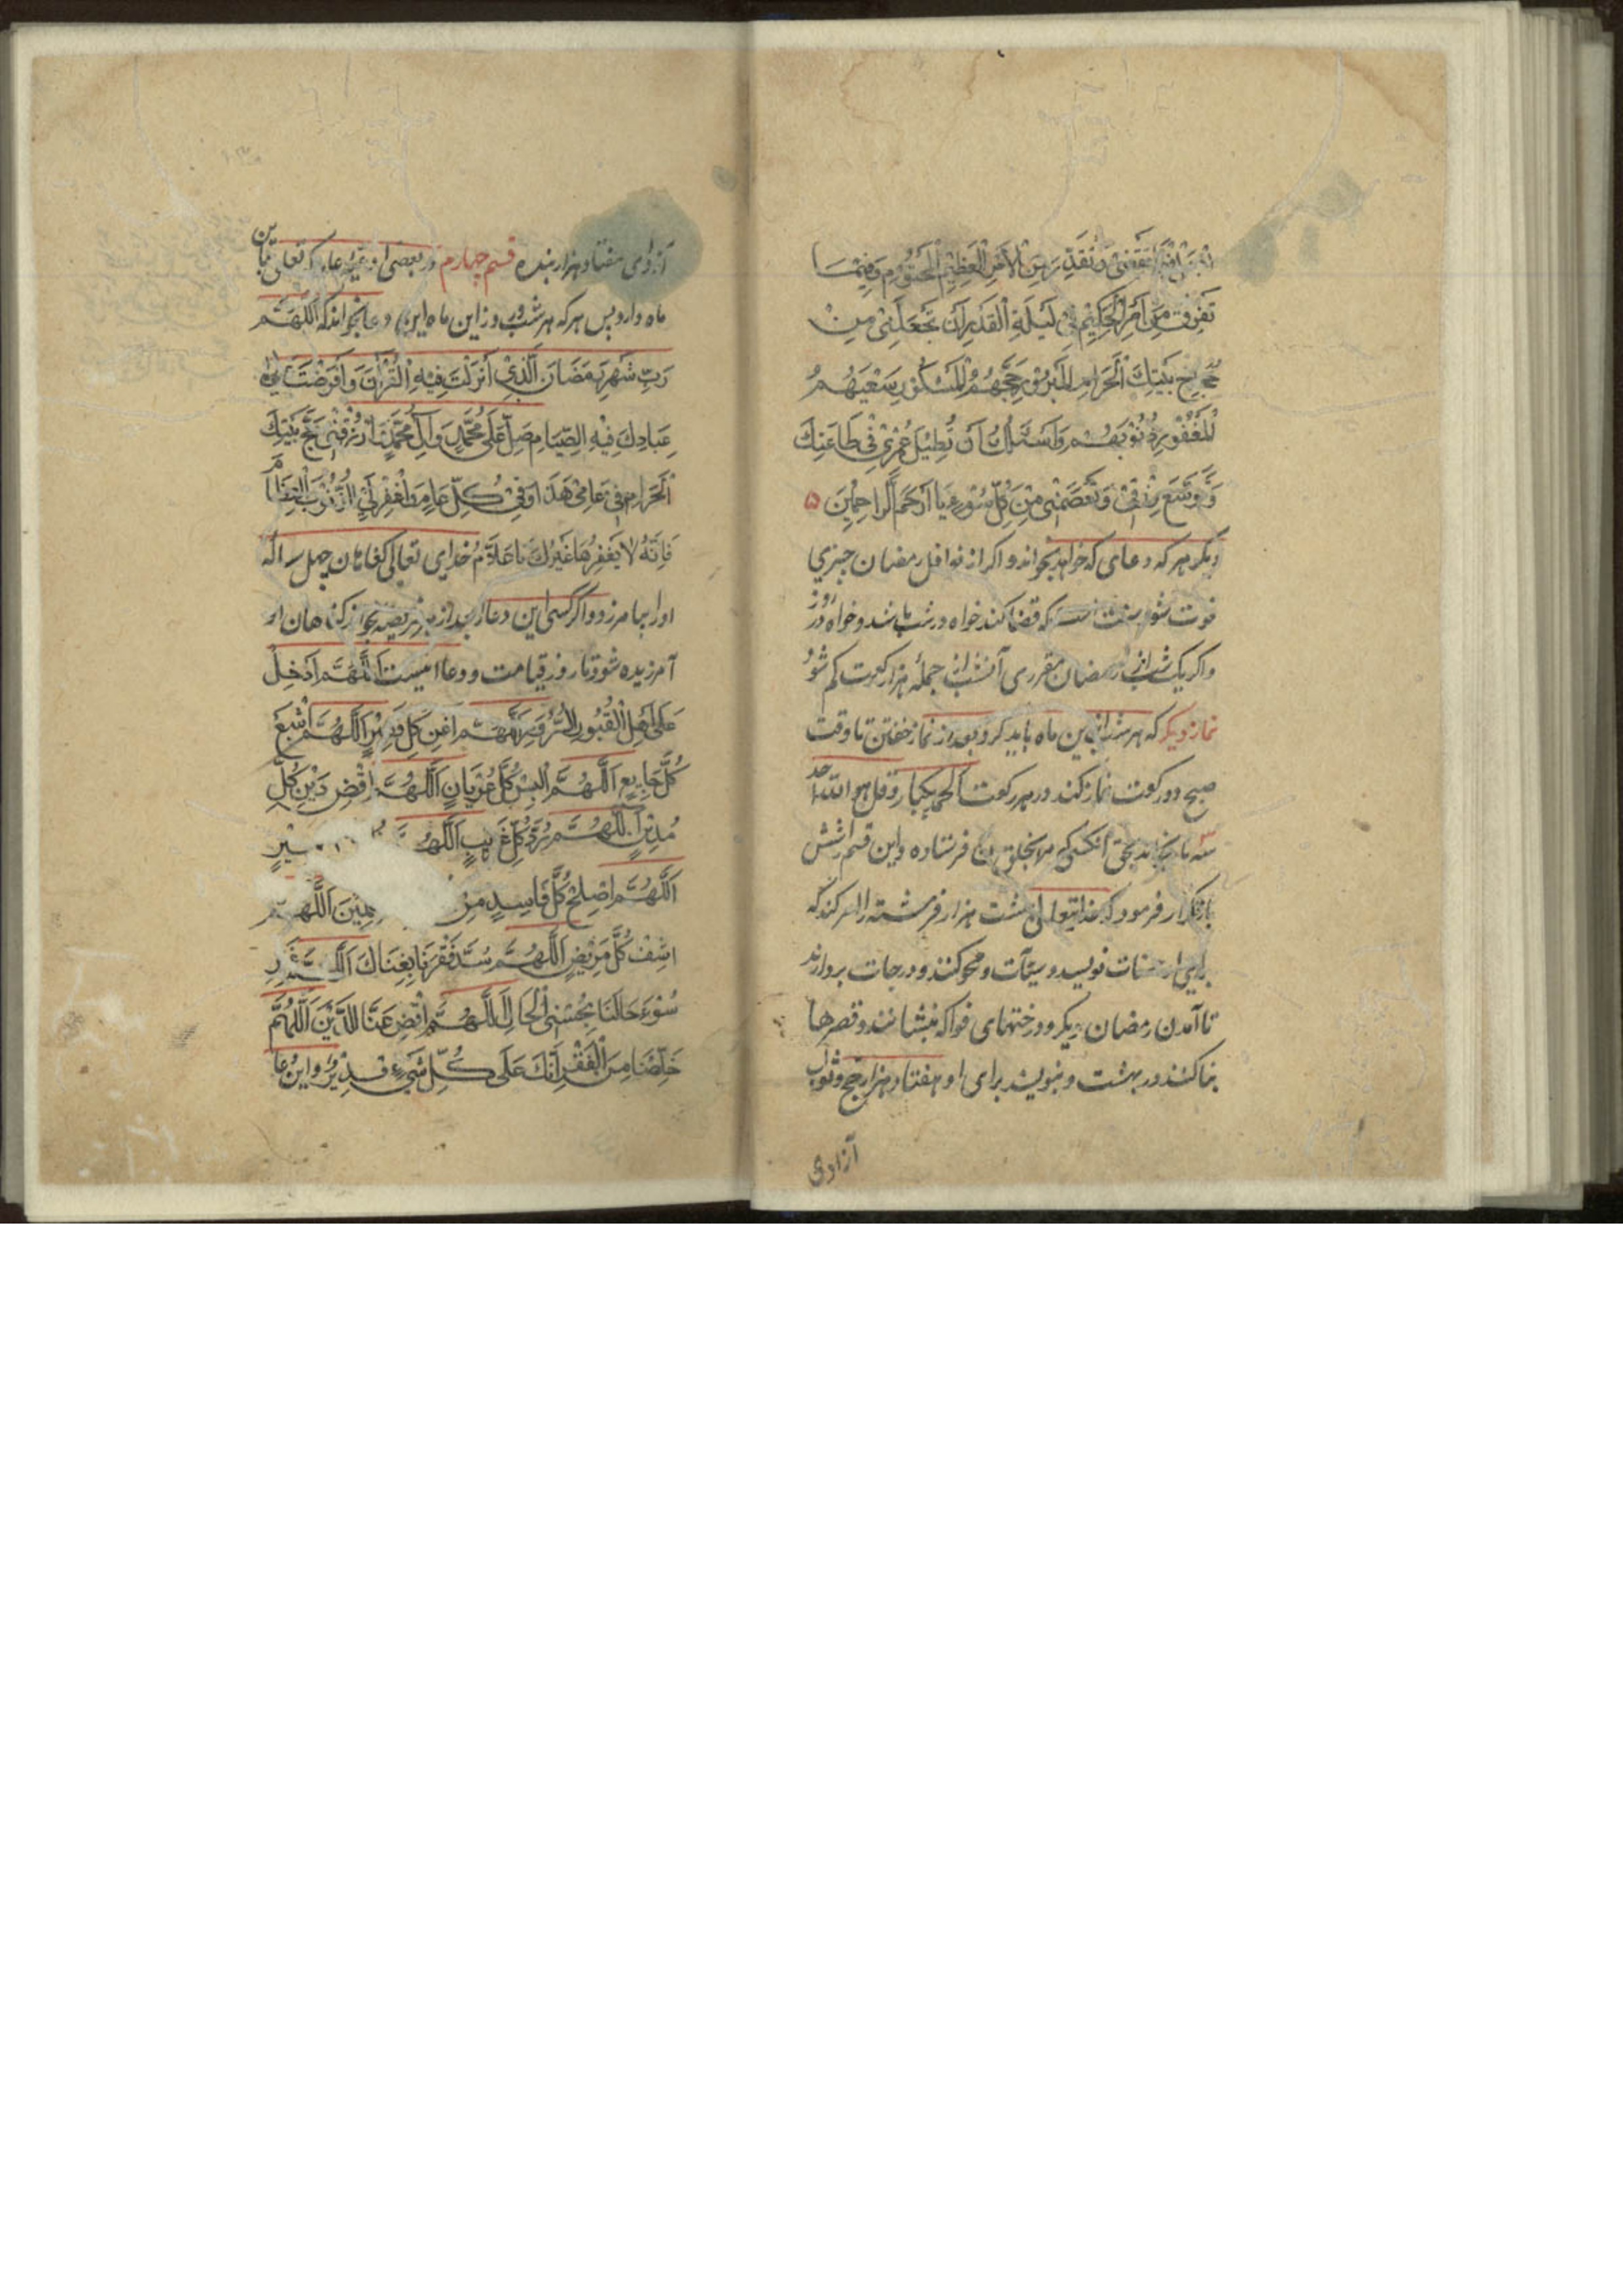 فیما تقضی و تقدر من الأمر العظیم المحتوم و فیما
تَفرُقُ مِنَ الأَمرِ الحَکِیمِ فِی لَیلَةِ القَدرِ اَن تَجعَلَنِی مِن
حُجَّاجِ بَیتِكَ الحَرَامِ المَبرُورِ حَجُّهُمُ المَشکُورِ سَعیُهُمُ
المَغفُورِ ذُنُوبُهُم وَاَسئَلُكَ اَن تُطِیلَ عُمرِی فِی طَاعَتِكَ
وَتُوَسِّعَ رِزقِی وَتَعصَمنِی مِن کُلِّ سُوءٍ یَا اَرحَمَ الرَّاحِمِینَ ۵
دیکر هر که دعای که خواهد بخواند و اکر از نوافل رمضان چیزی
فوت شود سنت است که قضا کند خواه در شب باشد و خواه در روز
واکر یک شب از رمضان مقرری آنشب از جملهٔ هزار رکعت کم شود
نماز دیکر که هر شب ازین ماه باید کرد و بعد از نماز خفتن تا وقت
صبح دو رکعت نماز کند در هر رکعت الحمد یکبار و قل هو الله احد
سه بار بخواند بحق آنکسی که مرا بخلق فرستاده و این قسم را شش
بار تکرار فرمود که خدایتعالی هشت هزار فرشته را امر کند که
برای او حسنات نویسد و سیّآت محو کنند و درجات بردارند
تا آمدن رمضان دیکر و درختهای فواکه بنشانند و قصرها
بنا کنند در بهشت و بنویسند برای او هفتاد هزار حج و ثواب
آزادی
آزادی هفتاد هزار بنده قسم چهارم در بعضی ادعیه که تعلق باین
ماه دارد پس هر که هر شب و روز این ماه این دعا بخواند که اَللَّهُمَّ
رَبَّ شَهرِ رَمَضَانَ الَّذِی اَنزَلتَ فِیهِ القُرآنَ وَافتَرَضتَ عَلَی
عِبَادِكَ فِیهِ الصِّیَامِ صَلِّ عَلَی مُحَمَّدٍ وَآلِ مُحَمَّدٍ وَارزُقنِی حَجَّ بَیتِكَ
الحَرَامِ فِی عَامِی هَذَا وَفِی کُلِّ عَامٍ وَاغفِرلِیَ الذُّنُوبَ العِظَامَ
فَاِنَّهُ لَا یَغفِرُهَا غَیرُكَ یَا عَلَّامُ خدای تعالی کناهان چهل ساله
او را بیامرزد و اکر کسی این دعا را بعد از هر فریضه بخواند کناهان او
آمرزیده شود تا روز قیامت و دعا اینست اَللَّهُمَّ اَدخِل
عَلَی اَهلِ القُبُورِ السُّرُورَ اَللَّهُمَّ اغنِ کُلَّ فَقِیرٍ اَللَّهُمَّ اشبِع
کُلَّ جَایِعٍ اَللَّهُمَّ البِس کُلَّ عُریَانٍ اَللَّهُمَّ اقضِ دَینَ کُلِّ
مُدِینٍ اَللَّهُمَّ رُدَّ کُلَّ غَرِیبٍ اَللَّهُ
اَللَّهُمَّ اصلِح کُلَّ فَاسِدٍ مِن اَللَّهُمَّ
اشفِ کُلَّ مَرِیضٍ اَللَّهُمَّ سُدَّ فَقرَنَا بِغِنَاكَ اَللَّهُمَّ غَیِّر
سُوءَ حَالَنَا بِحُسنِ الحَالِ اَللَّهُمَّ اقضِ عَنَّا الدَّینَ اَللَّهُمَّ
خَلِّصنَا مِنَ الفَقرِ اِنَّكَ عَلَی کُلِّ شَیءٍ قَدِیرٌ و این دعا